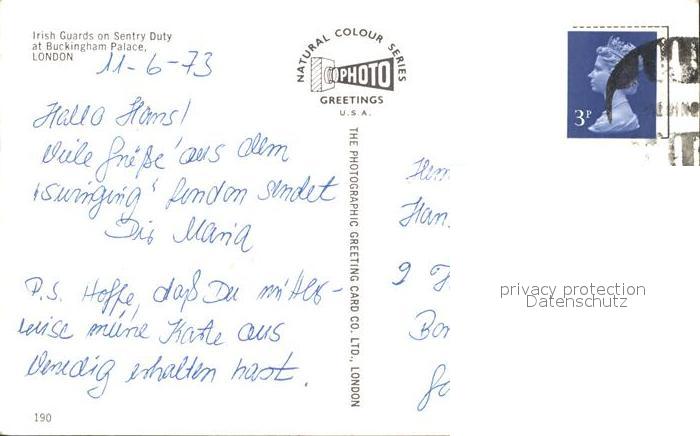 Irish Guards on Sentry Duty
at Buckingham Palace,
LONDON
11-6-73
Hallo Hans!
Viele Grüße aus dem
'swinging' London sendet
Dir Maria
P.S. Hoffe, daß Du
weise meine Karte aus
Venedig erhalten hast.
190
NATURAL COLOUR SERIES
PHOTO
GREETINGS
U.S.A.
THE PHOTOGRAPHIC GREETING CARD CO. LTD., LONDON
3P
Han
9
privacy protection
Datenschutz